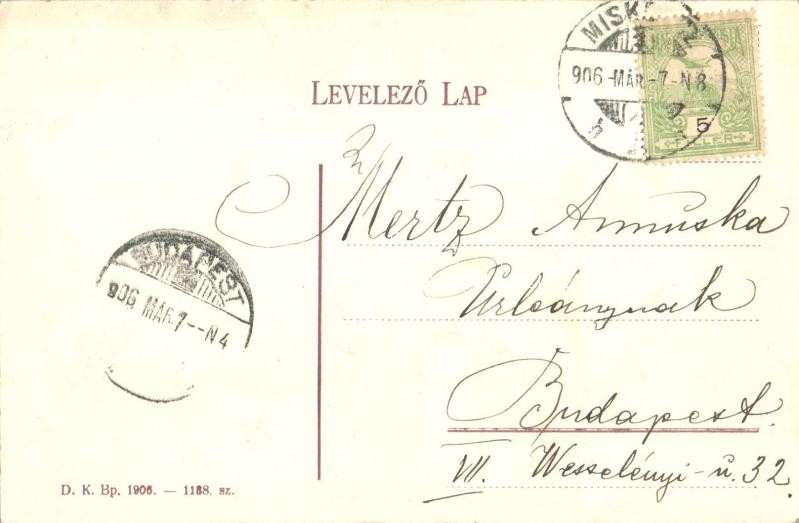 LEVELEZŐ LAP
MISKOLCZ
906-MÁR-7-N8
5
FILLÉR
Mertz Annuska
Urleánynak
Budapest.
VII. Wesselényi-u. 32.
BUDAPEST
906 MÁR.7--N4
D. K. Bp. 1906. — 1188. sz.